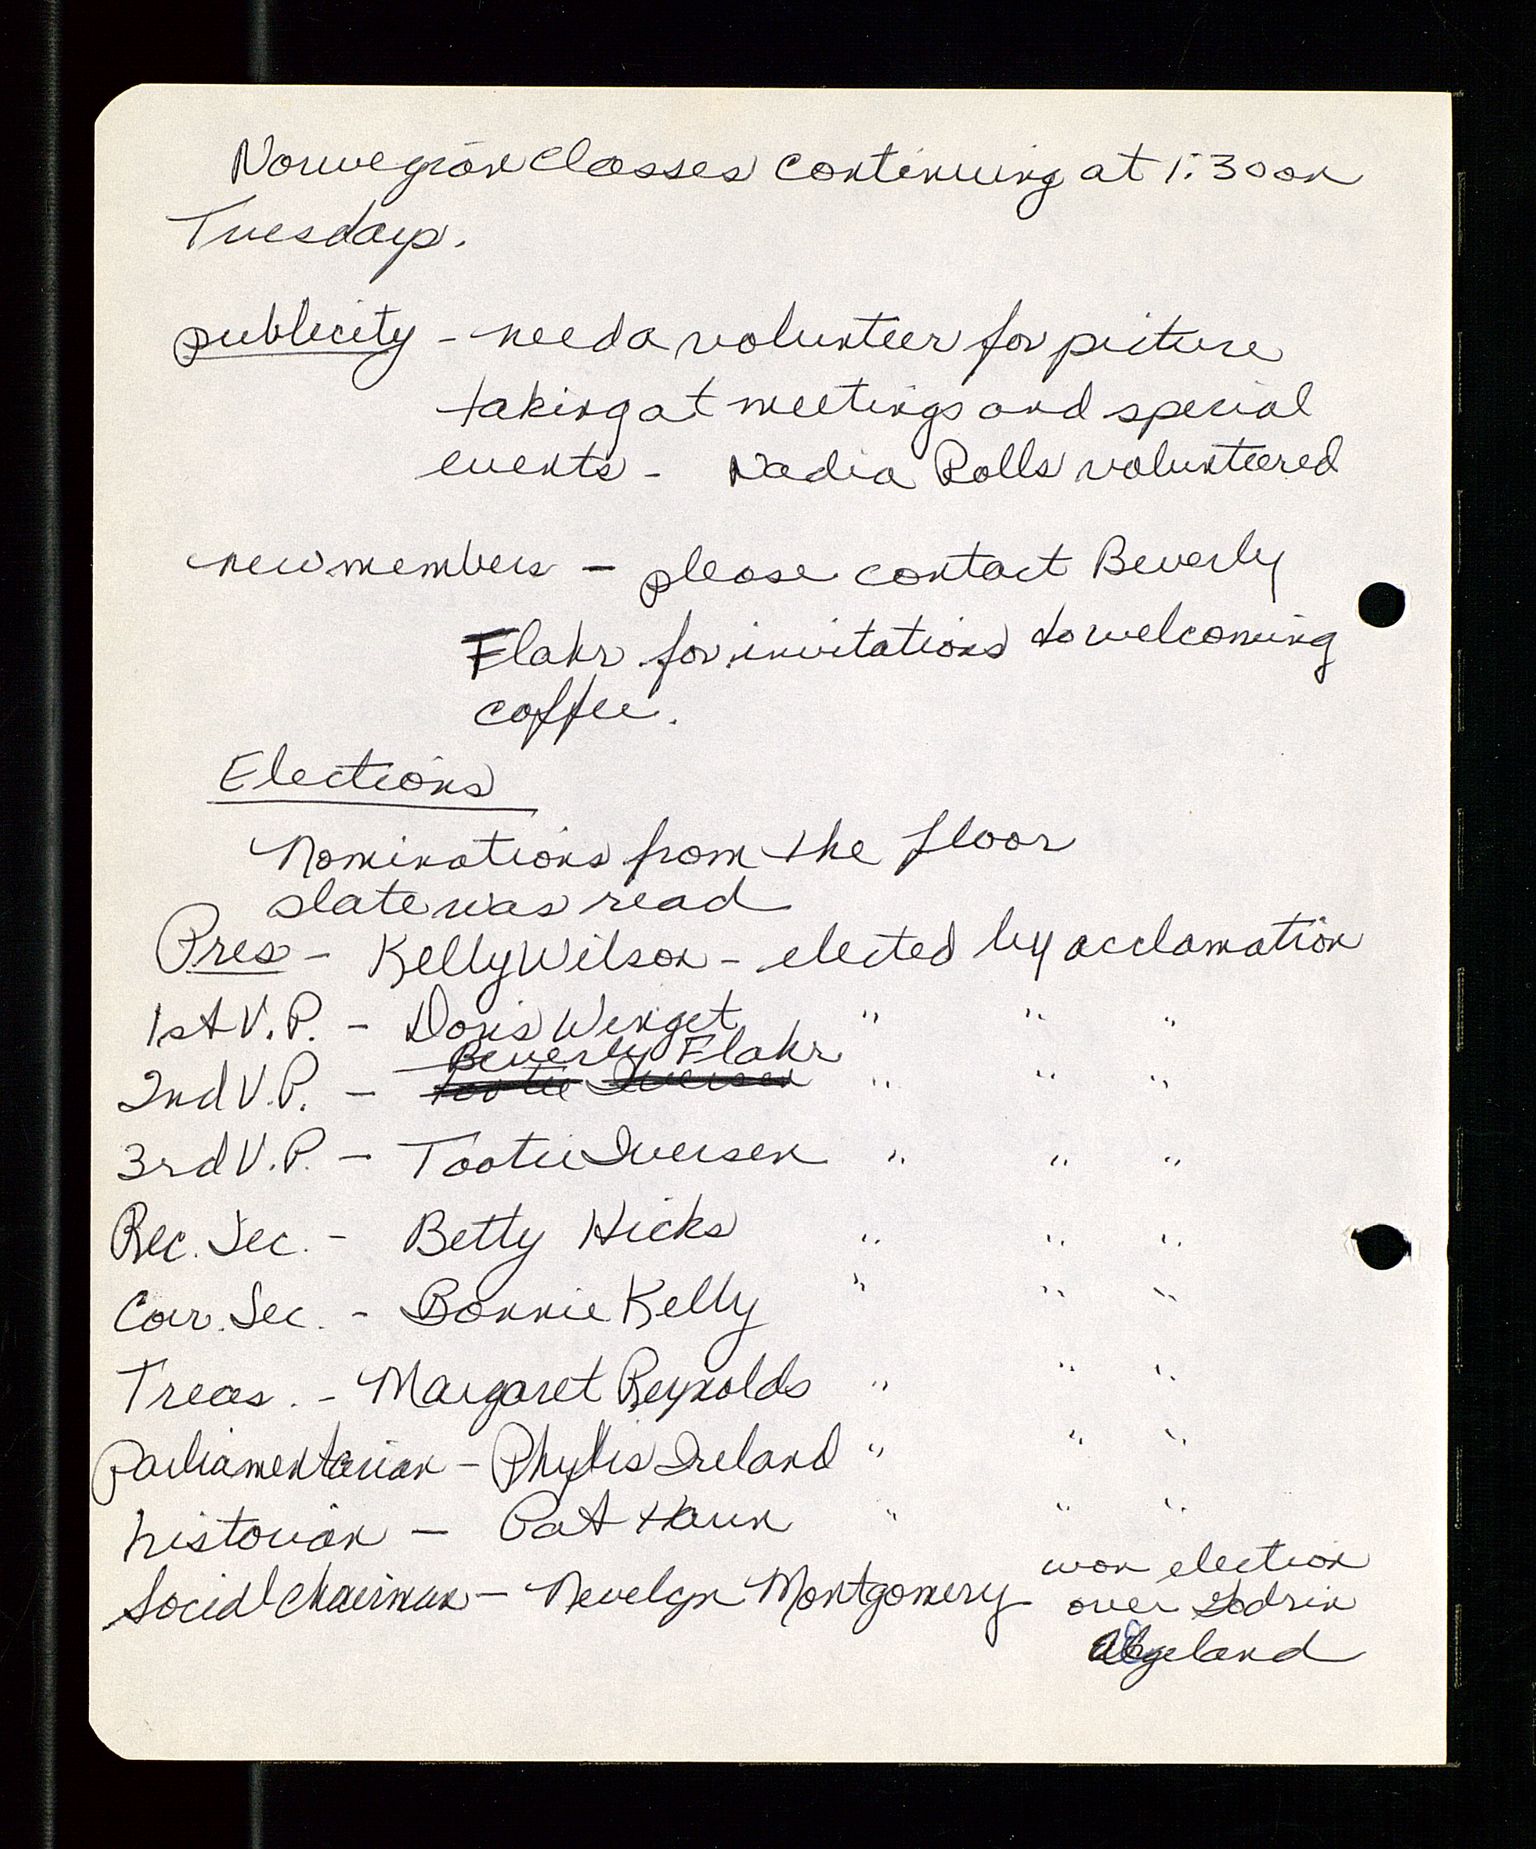 Norwegian classes continuing at 1:30 on
Tuesdays.
publicity - need a volunteer for picture
taking at meetings and special
events - Nadia Rolls volunteered
new members - please contact Beverly
Flakr for invitations to welcoming
coffee.
Elections
Nominations from the floor
slate was read
Pres - Kelly Wilson - elected by acclamation
1st V.P. - Doris Wenget " " "
Beverly Flakr
2nd V.P. - Tootie Iversen " " "
3rd V.P. - Tootie Iversen " " "
Rec. Sec. - Betty Hicks " " "
Corr. Sec. - Bonnie Kelly " " "
Treas. - Margaret Reynolds " " "
Parliamentarian - Phyllis Ireland " " "
historian - Pat Haun " " "
Social Chairman - Nevelyn Montgomery won election
over Godrin